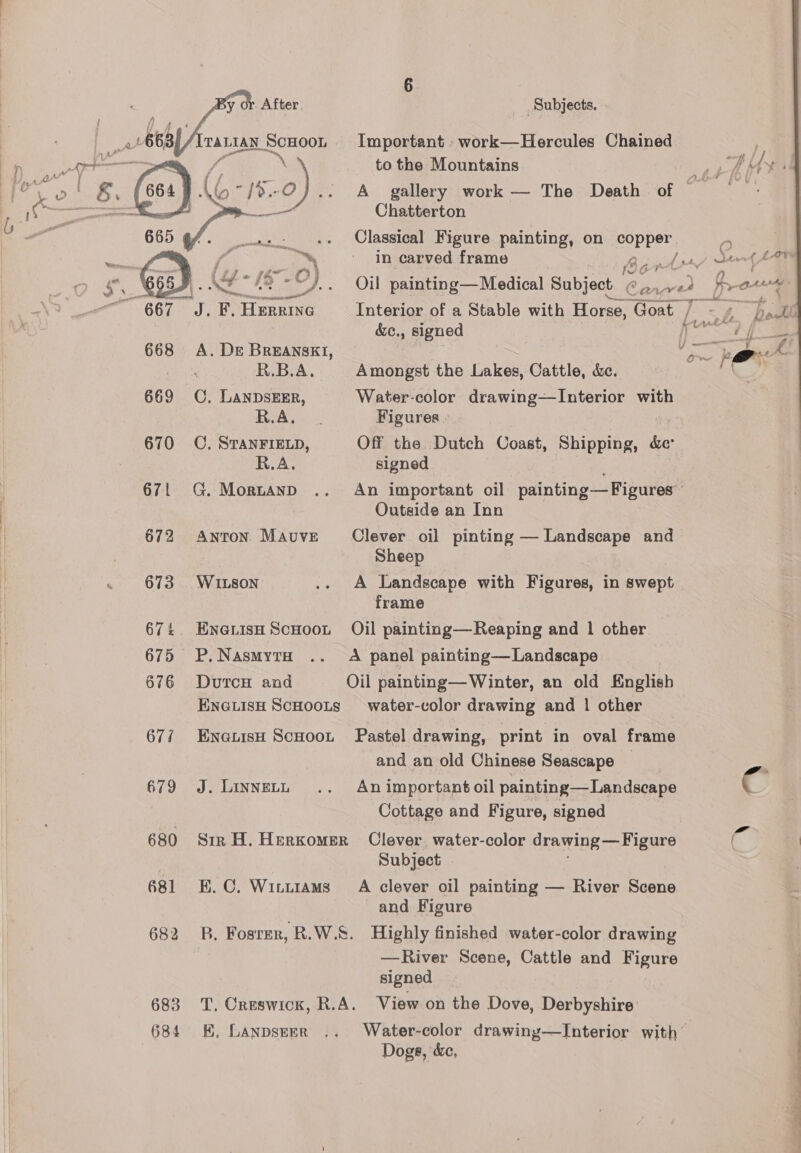 6
By or After. Subjects.
663 ITALIAN SCHOOL Important work—Hercules Chained
to the Mountains
664 (6-15-0) .. A gallery work — The Death of
Chatterton
665 .. Classical Figure painting, on copper
in carved frame
665 (4-15-0) .. Oil painting—Medical Subject Carved
667 J. F. HERRING Interior of a Stable with Horse, Goat
&c., signed
668 A. DE BREANSKI,
R.B.A. Amongst the Lakes, Cattle, &c.
669 C. LANDSEER, Water-color drawing—Interior with
R.A. Figures
670 C. STANFIELD, Off the Dutch Coast, Shipping, &c
R.A. signed
671 G. MORLAND .. An important oil painting—Figures
Outside an Inn
672 ANTON MAUVE Clever oil pinting — Landscape and
Sheep
673 WILSON .. A Landscape with Figures, in swept
frame
674 ENGLISH SCHOOL Oil painting—Reaping and 1 other
675 P. NASMYTH .. A panel painting—Landscape
676 DUTCH and Oil painting—Winter, an old English
ENGLISH SCHOOLS water-color drawing and 1 other
677 ENGLISH SCHOOL Pastel drawing, print in oval frame
and an old Chinese Seascape
679 J. LINNELL .. An important oil painting—Landscape
Cottage and Figure, signed
680 SIR H. HERKOMER Clever water-color drawing—Figure
Subject
681 E. C. WILLIAMS A clever oil painting — River Scene
and Figure
682 B. FOSTER, R.W.S. Highly finished water-color drawing
—River Scene, Cattle and Figure
signed
683 T. CRESWICK, R.A. View on the Dove, Derbyshire
684 E. LANDSEER .. Water-color drawing—Interior with
Dogs, &c,